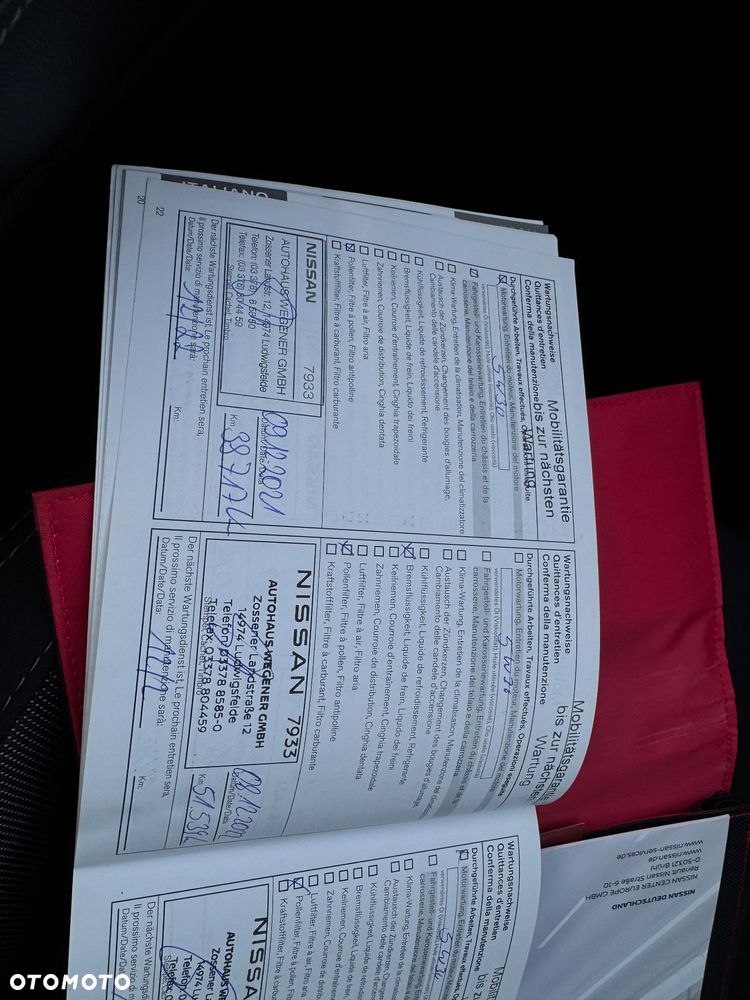 ITALIANO
20
22
Wartungsnachweise
Quittances d'entretien
Conferma della manutenzione
Mobilitätsgarantie
bis zur nächsten
Wartung
Durchgeführte Arbeiten, Travaux effectués,
Motorwartung, Entretien du moteur, Manutenzione del motore
verwendetes Öl (Viskosität), Huile utilisée (viscosité), Olio usato (viscosità)
5W30
Fahrgestell- und Karosseriewartung, Entretien du châssis et de la
carrosserie, Manutenzione del telaio e della carrozzeria
Klima-Wartung, Entretien de la climatisation, Manutenzione del climatizzatore
Austausch der Zündkerzen, Changement des bougies d'allumage,
Cambiamento delle candele d'accensione
Kühlflüssigkeit, Liquide de refroidissement, Refrigerante
Bremsflüssigkeit, Liquide de frein, Liquido dei freini
Keilriemen, Courroie d'entraînement, Cinghia trapezoidale
Zahnriemen, Courroie de distribution, Cinghia dentata
Luftfilter, Filtre à air, Filtro aria
Pollenfilter, Filtre à pollen, Filtro antipolline
Kraftstofffilter, Filtre à carburant, Filtro carburante
NISSAN 7933
AUTOHAUS WEGENER GMBH
Zossener Landstr. 12, 14974 Ludwigsfelde
Telefon: (03 378)
Telefax: (03 378) 80 44 59
09.12.2021
Datum/Date/Data
Km:
Der nächste Wartungsdienst ist, Le prochain entretien sera,
Il prossimo servizio di manutenzione sarà:
Datum/Date/Data:
Km:
Wartungsnachweise
Quittances d'entretien
Conferma della manutenzione
Mobilitätsgarantie
bis zur nächsten
Wartung
Durchgeführte Arbeiten, Travaux effectués, Operazioni eseguite
Motorwartung, Entretien du moteur, Manutenzione del motore
verwendetes Öl (Viskosität), Huile utilisée (viscosité), Olio usato
Fahrgestell- und Karosseriewartung, Entretien du châssis et de la
carrosserie, Manutenzione del telaio e della carrozzeria
Klima-Wartung, Entretien de la climatisation, Manutenzione
Austausch der Zündkerzen, Changement des bougies d'allumage
Cambiamento delle candele d'accensione
Kühlflüssigkeit, Liquide de refroidissement, Refrigerante
Bremsflüssigkeit, Liquide de frein, Liquido dei freini
Keilriemen, Courroie d'entraînement, Cinghia trapezoidale
Zahnriemen, Courroie de distribution, Cinghia dentata
Luftfilter, Filtre à air, Filtro aria
Pollenfilter, Filtre à pollen, Filtro antipolline
Kraftstofffilter, Filtre à carburant, Filtro carburante
NISSAN 7933
AUTOHAUS WEGENER GMBH
Zossener Landstraße 12
14974 Ludwigsfelde
Telefon 03378 8585-0
Telefax 03378 804459
Datum/Date/Data
Km:
Der nächste Wartungsdienst ist, Le prochain entretien sera,
Il prossimo servizio di manutenzione sarà:
Datum/Date/Data:
Km:
Wartungsnachweise
Quittances d'entretien
Conferma della manutenzione
bis zur
Durchgeführte Arbeiten, Travaux effectués,
Motorwartung, Entretien du
5W30
Klima-Wartung, Entretien de la
Austausch der Zündkerzen,
Cambiamento delle candele
Kühlflüssigkeit, Liquide de
Bremsflüssigkeit, Liquide de
Keilriemen, Courroie
Zahnriemen, Courroie de
Luftfilter, Filtre à air,
Pollenfilter, Filtre à pollen,
Kraftstofffilter, Filtre à
NISSAN
AUTOHAUS WEGENER
Der nächste Wartungsdienst
Il prossimo servizio di
NISSAN DEUTSCHLAND
NISSAN CENTER EUROPE GMBH
Renault Nissan Straße 6-10
D-50321 Brühl
www.nissan.de
www.nissan-services.de
OTOMOTO